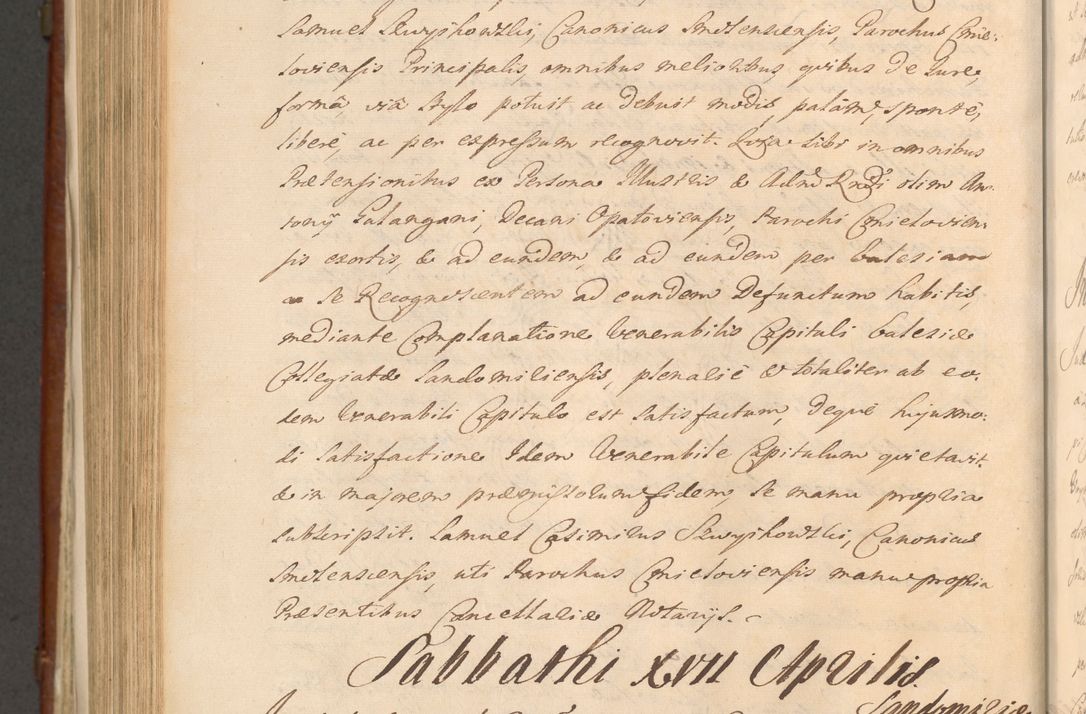 Samuel Skwyrkowski, Canonicus Smolenscensis, Parochus Cmie-
loviensis Principalis, omnibus melioribus, quibus de Jure,
forma via stylo potuit ac debuit modis, palam, sponte,
libere, ac per expressum recognovit. Quia sibi in omnibus
Prætensionibus ex Persona Illustris & Adm Rndi olim An-
tonÿ Galangani, Decani Opatoviensis, Parochi Cmielovien-
sis exortis, & ad eundem, & ad eundem per
a se Recognoscentem ad eundem Defunctum habitis,
mediante Complanatione Venerabilis Capituli Ecclesiæ
Collegiatæ Sandomiriensis, plenarie & totaliter ab eo-
dem Venerabili Capitulo est satisfactum, deque hujusmo-
di Satisfactione Idem Venerabile Capitulum quietavit.
& in majorem præmissorum fidem, se manu propria
subscripsit. Samuel Casimirus Skwyrkowski, Canonicus
Smolenscensis, uti Parochus Cmieloviensis manu propria
Præsentibus Cancellariæ Notarijs.
Sabbathi XVII Aprilis.
Sandomiriæ